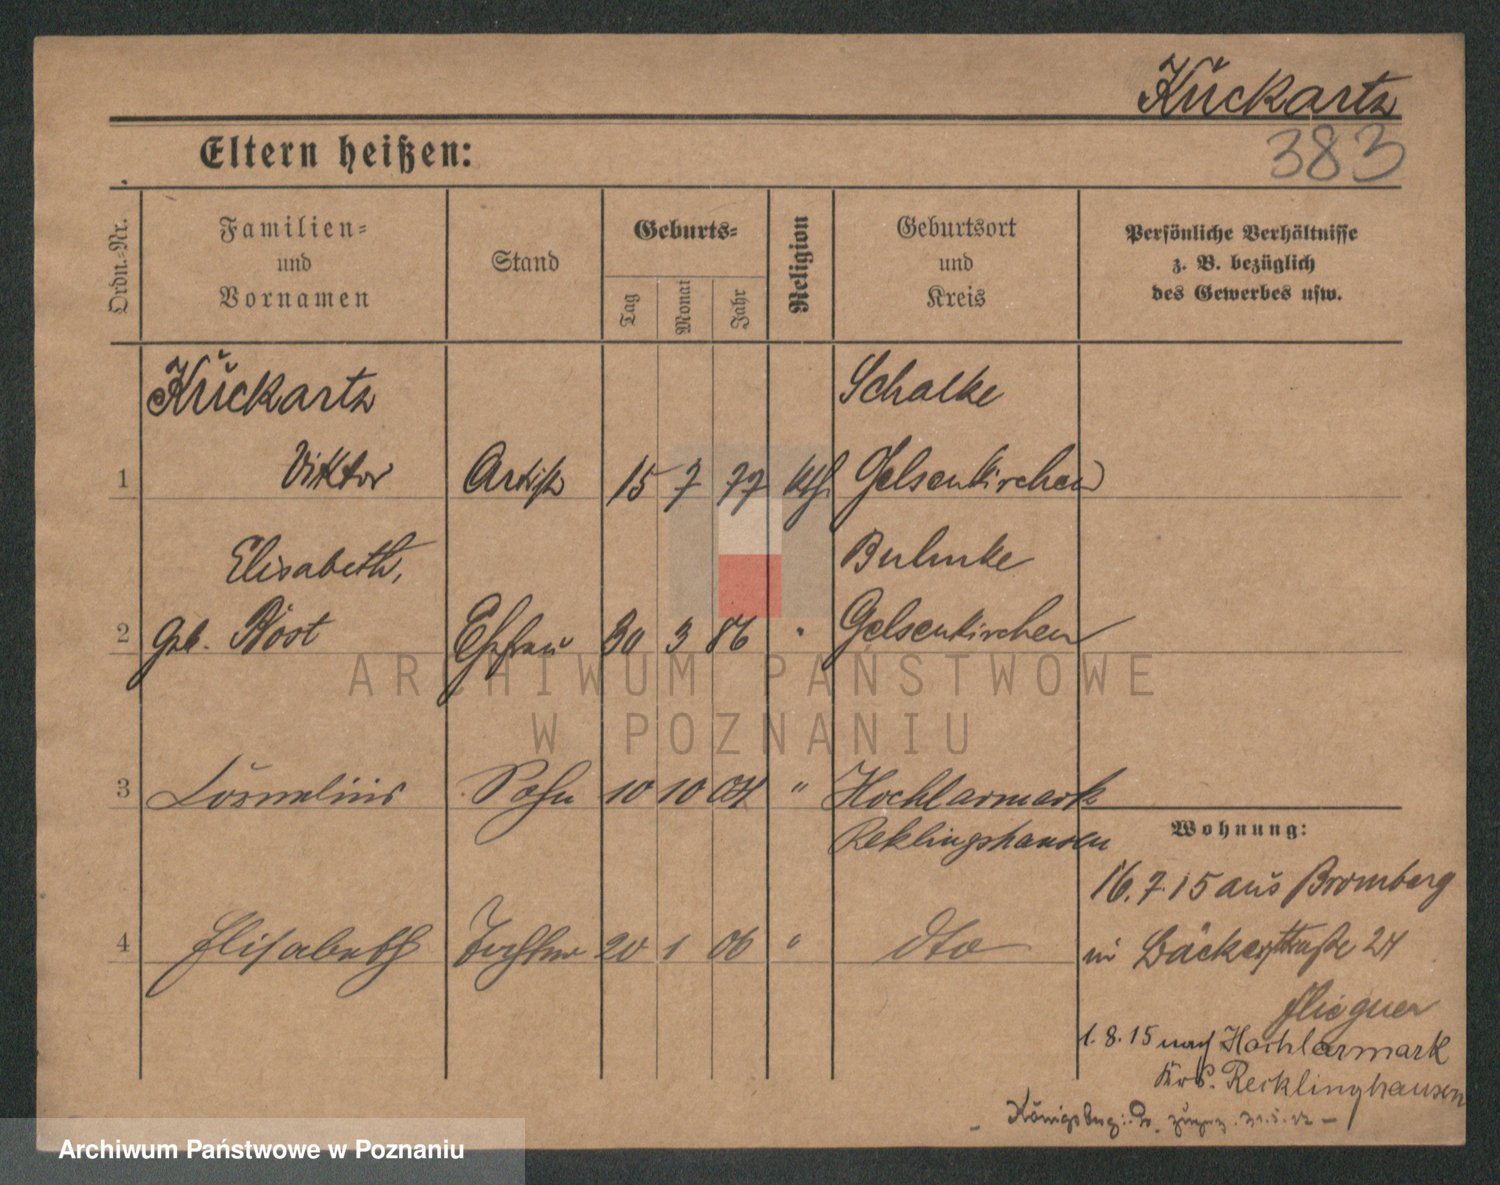 Kückartz
383
Eltern heißen:
Ordn.-Nr.
Familien-
und
Vornamen
Stand
Geburts-
Tag
Monat
Jahr
Religion
Geburtsort
und
Kreis
Persönliche Verhältnisse
z. B. bezüglich
des Gewerbes usw.
Kückartz
Schalke
1 Viktor Artist 15 7 77 kth Gelsenkirchen
Elisabeth, Bulmke
2 geb. Röst Ehefrau 30 3 86 " Gelsenkirchen
3 Sohn 10 10 04 " Hochlarmark
Reklingshausen
Wohnung:
16.7.15 aus Bromberg
4 Elisabeth Tochter 20 1 06 " dto
in Bäckerstraße 24
Fliegner
1.8.15 nach Hochlarmark
Krs. Recklinghausen
ARCHIWUM PAŃSTWOWE
W POZNANIU
Archiwum Państwowe w Poznaniu